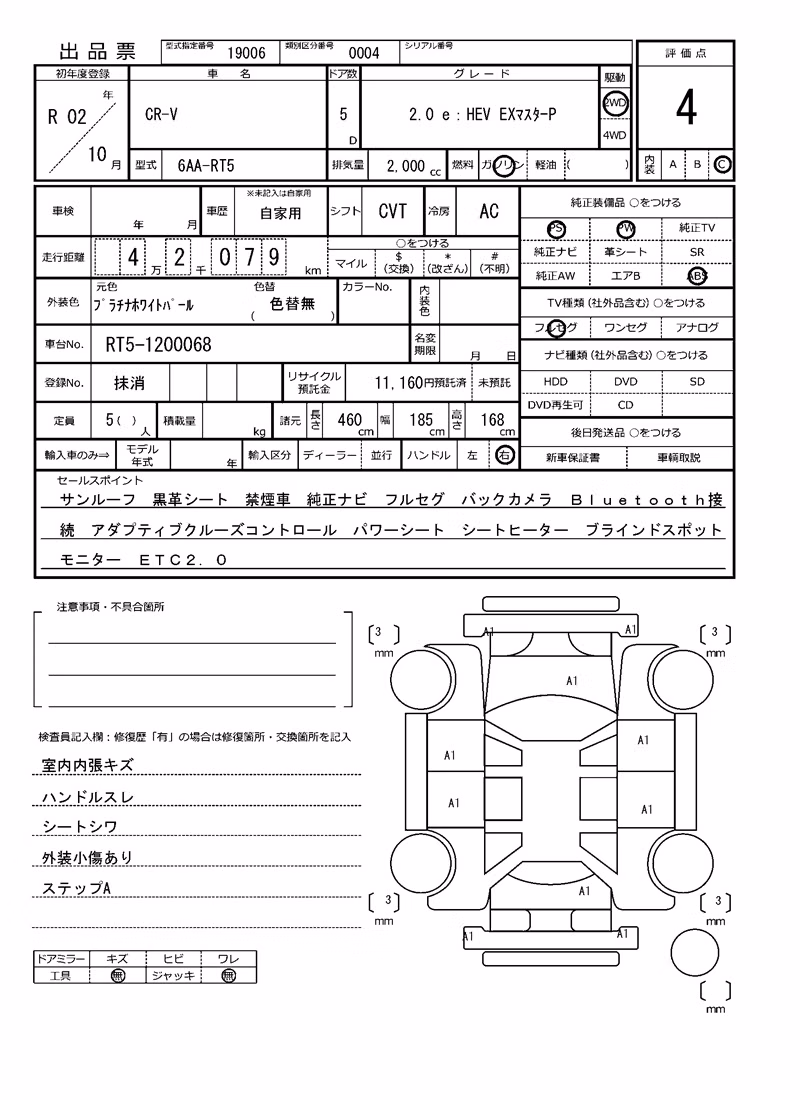 出品票 型式指定番号 19006 類別区分番号 0004 シリアル番号 評価点
初年度登録 車名 ドア数 グレード 駆動
R 02 年 10 月 CR-V 5 D 2.0 e：HEV EXマスターP 2WD 4WD 4
型式 6AA-RT5 排気量 2,000 cc 燃料 ガソリン 軽油 ( ) 内装 A B C
車検 年 月 車歴 ※未記入は自家用 自家用 シフト CVT 冷房 AC 純正装備品 ○をつける
PS PW 純正TV
走行距離 4 万 2 千 0 7 9 km ○をつける マイル $ (交換) * (改ざん) # (不明) 純正ナビ 革シート SR
純正AW エアB ABS
外装色 元色 ﾌﾟﾗﾁﾅﾎﾜｲﾄﾊﾟｰﾙ 色替 ( 色替無 ) カラーNo. 内装色 TV種類 (社外品含む) ○をつける
フルセグ ワンセグ アナログ
車台No. RT5-1200068 名変期限 月 日 ナビ種類 (社外品含む) ○をつける
登録No. 抹消 リサイクル預託金 11,160円預託済 未預託 HDD DVD SD
DVD再生可 CD
定員 5( ) 人 積載量 kg 諸元 長さ 460 cm 幅 185 cm 高さ 168 cm 後日発送品 ○をつける
輸入車のみ⇒ モデル年式 年 輸入区分 ディーラー 並行 ハンドル 左 右 新車保証書 車輌取説
セールスポイント
サンルーフ 黒革シート 禁煙車 純正ナビ フルセグ バックカメラ Ｂｌｕｅｔｏｏｔｈ接
続 アダプティブクルーズコントロール パワーシート シートヒーター ブラインドスポット
モニター ＥＴＣ２．０
注意事項・不具合箇所
3 mm A1 A1 3 mm
A1
検査員記入欄：修復歴「有」の場合は修復箇所・交換箇所を記入
室内内張キズ
ハンドルスレ
シートシワ
外装小傷あり
ステップA
A1 A1
A1 A1
A1
3 mm 3 mm
A1 A1
mm
ドアミラー キズ ヒビ ワレ
工具 無 ジャッキ 無